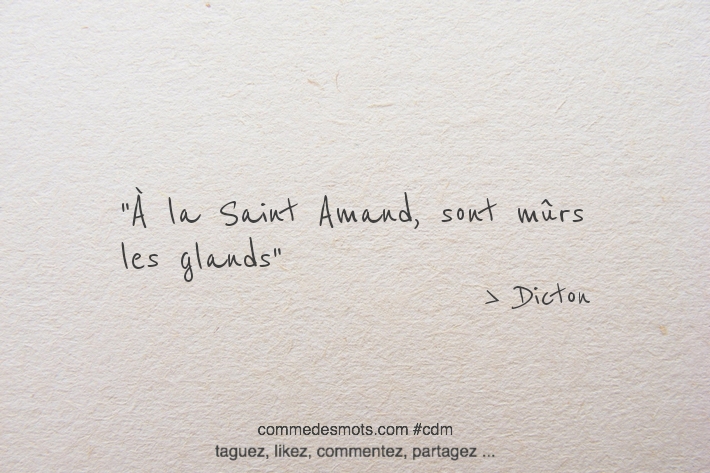 "À la Saint Amand, sont mûrs
les glands"
> Dicton
commedesmots.com #cdm
taguez, likez, commentez, partagez ...